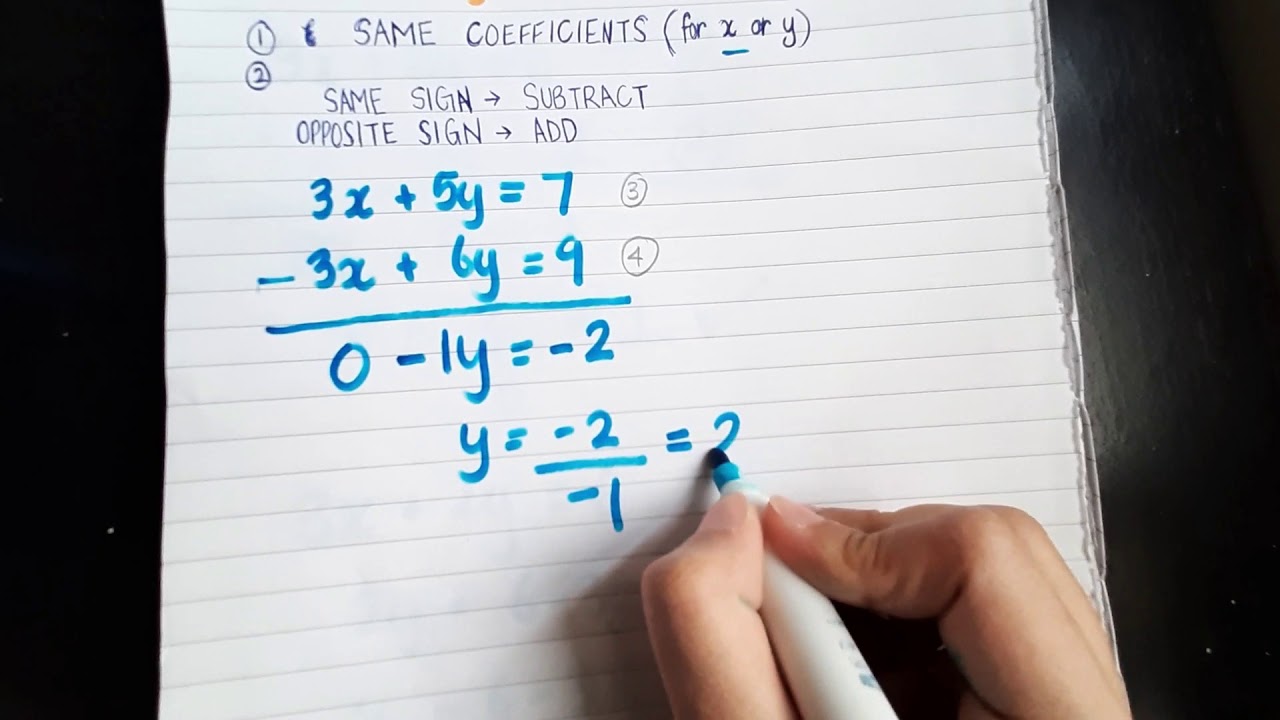 ① SAME COEFFICIENTS (for x or y)
②
SAME SIGN → SUBTRACT
OPPOSITE SIGN → ADD
3x + 5y = 7 ③
- 3x + 6y = 9 ④
0 - 1y = -2
y = -2/-1 = 2